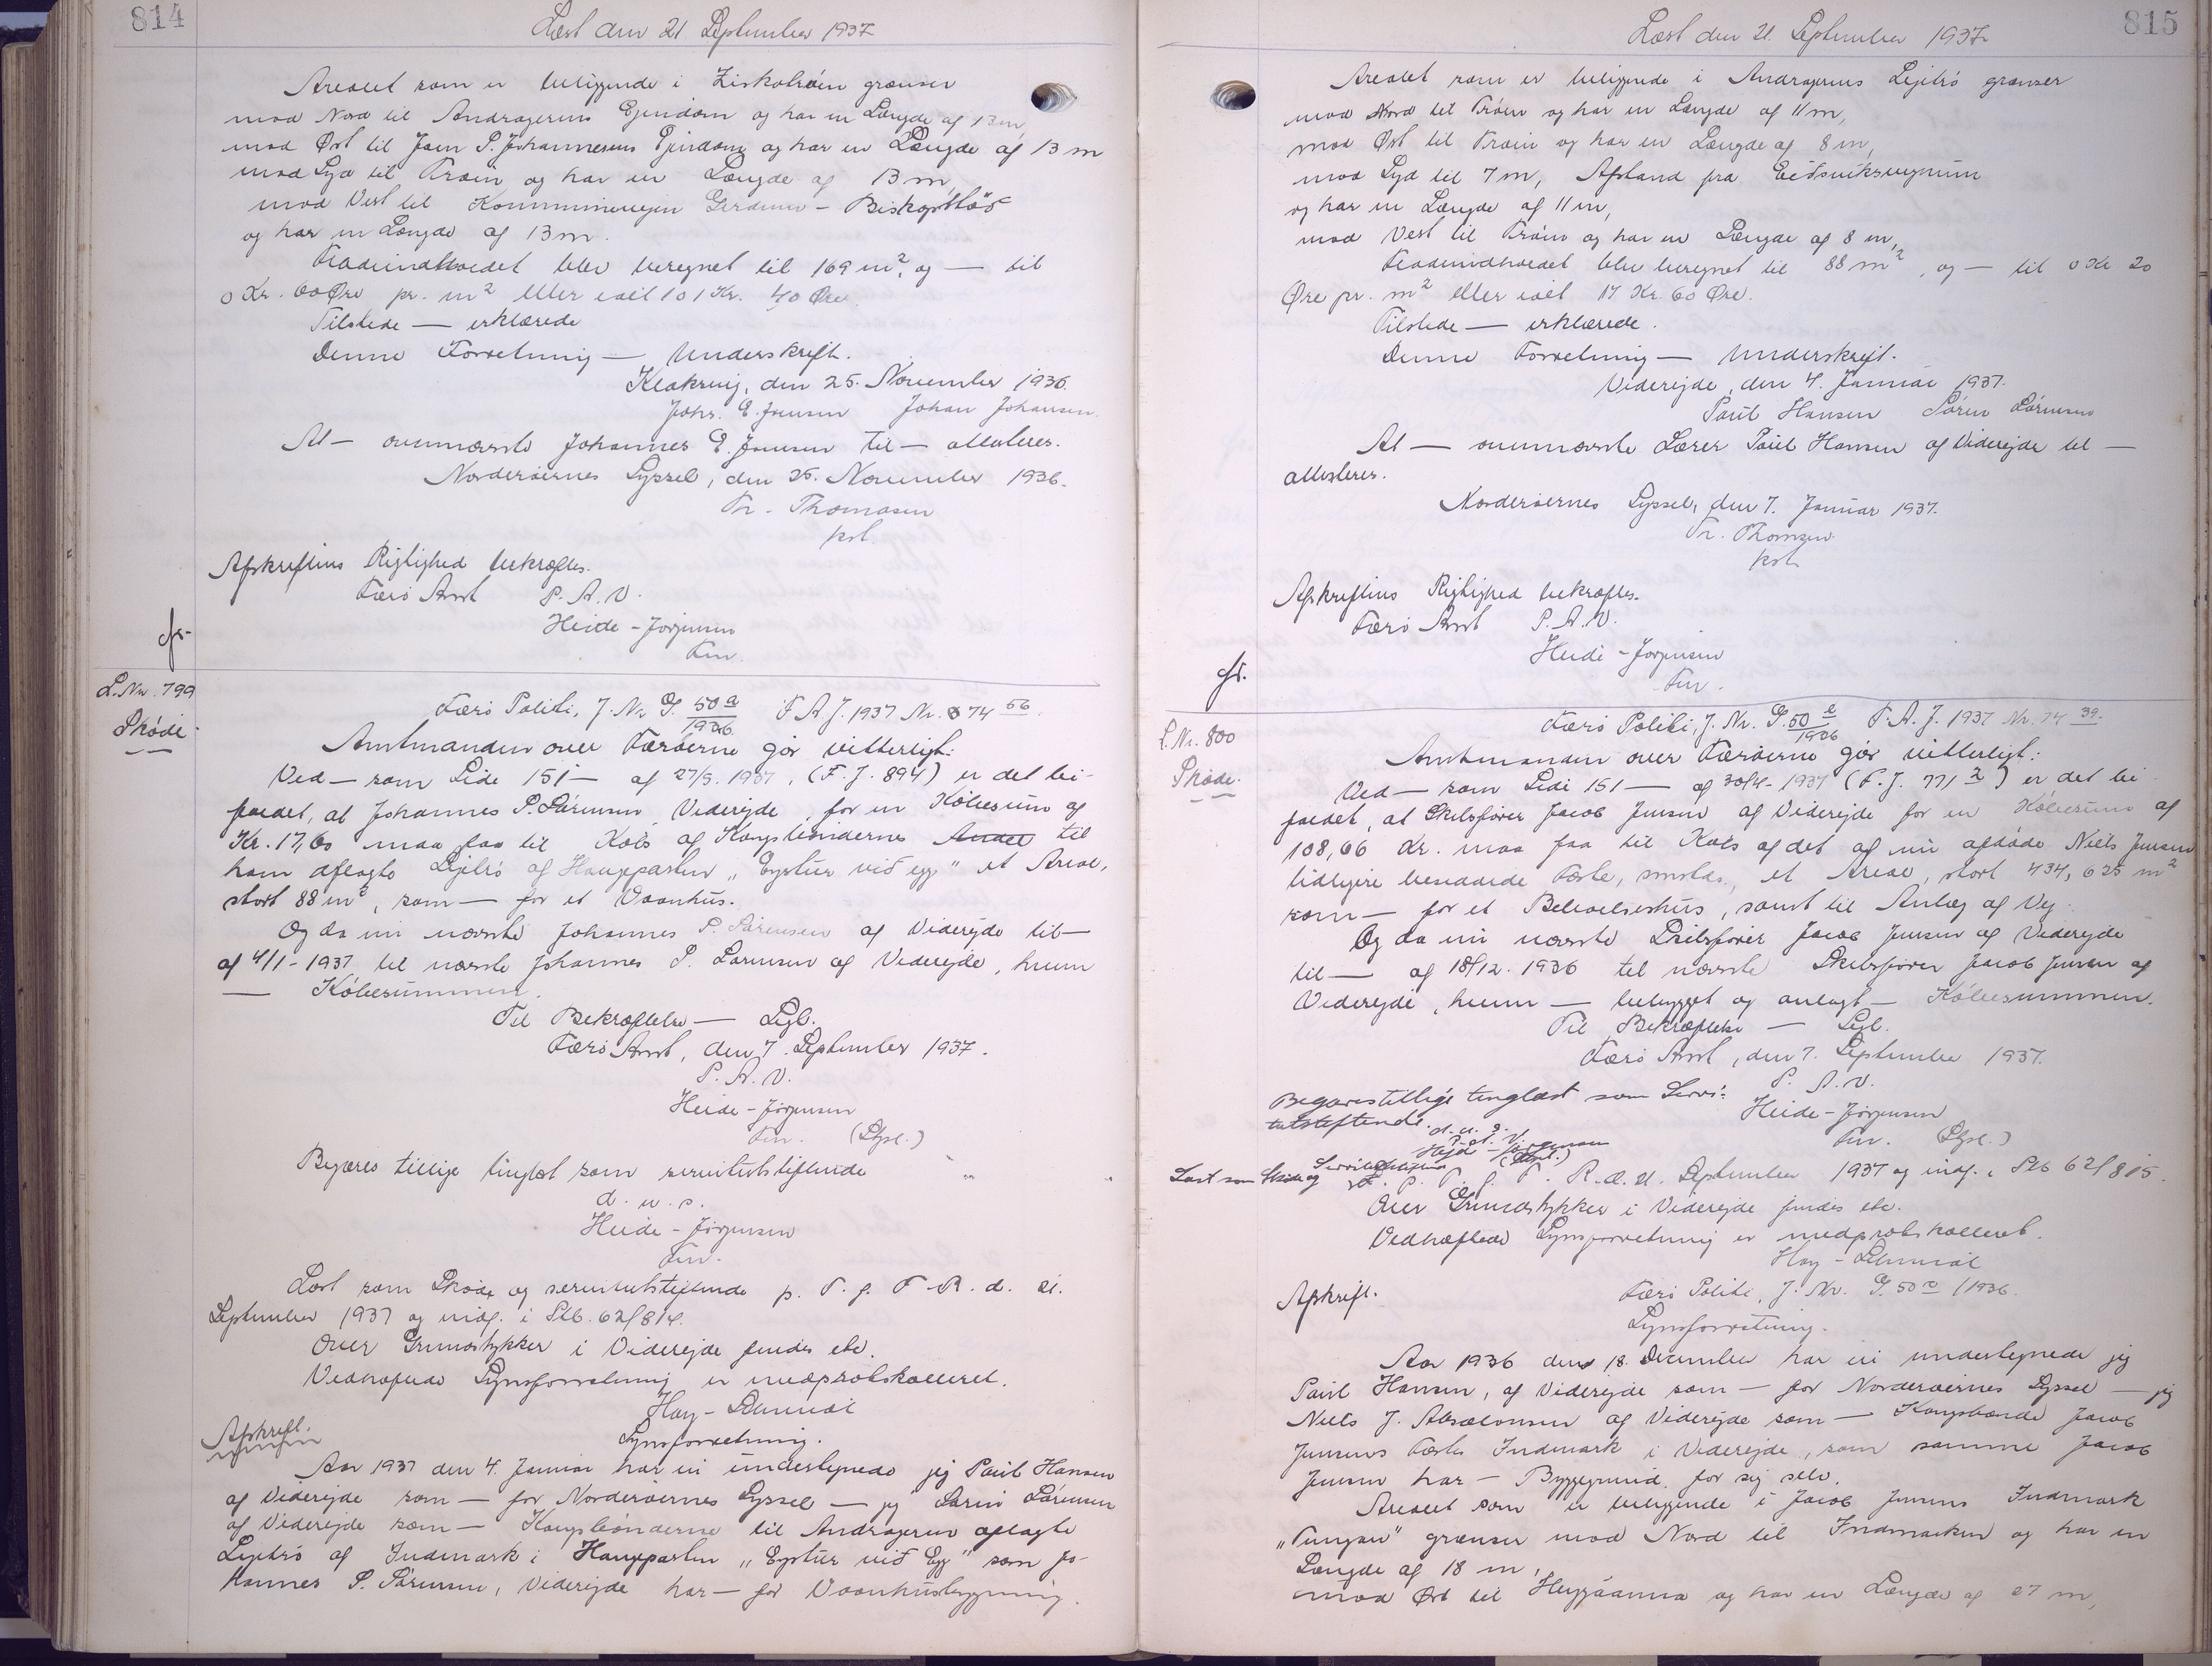 814
Læst den 21 September 1937
Arealet som er beliggende i grænser
mod Nord til Andragerens Ejendom og har en Længde af 13 m,
mod Øst til Joen P. Johannesens Ejendom og har en Længde af 13 m
mod Syd til Trøen og har en Længde af 13 m,
mod Vest til Kommunevejen Gerdum - Biskopstöð
og har en Længde af 13 m.
Fladeindholdet blev beregnet til 169 m², og — til
0 Kr. 60 Øre pr. m² eller ialt 101 Kr. 40 Øre.
Tilstede — erklærede
Denne Forretning — Underskrift.
Klaksvig, den 25. November 1936.
Johs. E. Joensen Johan Johansen.
At — ovennævnte Johannes E. Joensen til — attesteres.
Norderøernes Syssel, den 25. November 1936.
Tr. Thomsen
kst.
Afskriftens Rigtighed bekræftes.
Færø Amt P. A. V.
Heide-Jørgensen
Fm.
L. Nr. 799
Skøde.
Færø Politi, J. Nr. G. 50 a/1936 F. A. J. 1937 Nr. 74 56.
Amtmanden over Færøerne gør vitterligt:
Ved — som Side 151 — af 27/5. 1937, (F. J. 894) er det bi-
faldet, at Johannes P. Sørensen, Viderejde, for en Købesum af
Kr. 17,60 maa faa til Køb af Kongsbøndernes Andel til
ham aflagte Lejetrø af Haugeparten „Eystur við egg" et Areal,
stort 88 m², som — for et Vaanhus.
Og da nu nævnte Johannes P. Sørensen af Viderejde til —
af 4/1-1937 til nævnte Johannes P. Sørensen af Viderejde, hvem
— Købesummen.
Til Bekræftelse — Segl.
Færø Amt, den 7. September 1937.
P. A. V.
Heide-Jørgensen
Fm. (Stpl.)
Begæres tillige tinglæst som servitutstiftende
d. u. s.
Heide-Jørgensen
Fm.
Læst som Skøde og servitutstiftende p. T. f. F. R. d. 21.
September 1937 og indf. i Skb. 62/814.
Over Grundstykker i Viderejde findes etc.
Vedhæftede Synsforretning er medprotokolleret.
Hoy-Schmidt
Afskrift.
Synsforretning.
Aar 1937 den 4. Januar har vi undertegnede jeg Poul Hansen
af Viderejde som — for Norderøernes Syssel — jeg Søren Sørensen
af Viderejde som — Kongsbønderne til Andrageren aflagte
Lejetrø af Indmark i Haugeparten „Eystur við Egg" som Jo-
hannes P. Sørensen, Viderejde har — for Vaanhusbygning.
815
Læst den 21. September 1937
Arealet som er beliggende i Andragerens Lejetrø grænser
mod Nord til Trøen og har en Længde af 11 m,
mod Øst til Trøen og har en Længde af 8 m,
mod Syd til 7 m, Afstand fra Eiðsvíksvegnum
og har en Længde af 11 m,
mod Vest til Trøen og har en Længde af 8 m,
Fladeindholdet blev beregnet til 88 m², og — til 0 Kr 20
Øre pr. m² eller ialt 17 Kr. 60 Øre.
Tilstede — erklærede.
Denne Forretning — Underskrift.
Viderejde, den 4. Januar 1937.
Poul Hansen Søren Sørensen
At — ovennævnte Lærer Poul Hansen af Viderejde til —
attesteres.
Norderøernes Syssel, den 7. Januar 1937.
Tr. Thomsen
kst.
Afskriftens Rigtighed bekræftes.
Færø Amt P. A. V.
Heide-Jørgensen
Fm.
L. Nr. 800
Skøde.
Færø Politi, J. Nr. G. 50 c/1936 F. A. J. 1937 Nr. 74 39.
Amtmanden over Færøerne gør vitterligt:
Ved — som Side 151 — af 30/4-1937 (F. J. 771 2) er det bi-
faldet, at Skibsfører Jacob Jensen af Viderejde for en Købesum af
108,66 Kr. maa faa til Køb af det af nu afdøde Niels Jensen
tidligere benaadede Fæste, smstds., et Areal, stort 434,625 m²
som — for et Beboelseshus, samt til Anlæg af Vej.
Og da nu nævnte Skibsfører Jacob Jensen af Viderejde
til — af 18/12. 1936 til nævnte Skibsfører Jacob Jensen af
Viderejde, hvem — bebygget og anlagt — Købesummen.
Til Bekræftelse — Segl.
Færø Amt, den 7. September 1937.
P. A. V.
Heide-Jørgensen
Fm. (Stpl.)
Begæres tillige tinglæst som Servi-
tutstiftende.
d. u. s.
P. A. V.
Hejde-Jørgensen
(Stpl.)
Læst som Skøde og Servitutstiftende p. T. f. F. R. d. 21. September 1937 og indf. i Skb 62/815.
Over Grundstykker i Viderejde findes etc.
Vedhæftede Synsforretning er medprotokolleret.
Hoy-Schmidt
Afskrift.
Færø Politi, J. Nr. G. 50 c/1936.
Synsforretning.
Aar 1936 den 18. December har vi undertegnede jeg
Poul Hansen, af Viderejde som — for Norderøernes Syssel — jeg
Niels J. Absalonsen af Viderejde som — Kongsbonde Jacob
Jensens Fæste Indmark i Viderejde, som samme Jacob
Jensen har — Byggegrund for sig selv.
Arealet som er beliggende i Jacob Jensens Indmark
grænser mod Nord til Indmarken og har en
Længde af 18 m,
mod Øst til og har en Længde af 27 m,